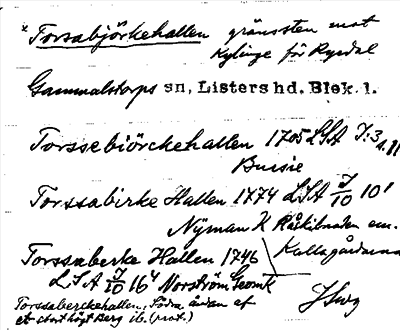 *Torsabjörkehallen gränssten mot
Kylinge för Rysdal
Gammalstorps sn, Listers hd. Blek. l.
Torssebiörckehallen 1705 LSA J:3
Torssabirke Hallen 1774 LSA J/10 10¹
Nyman K Råskillnaden em.
Kullagårdarna
Torssaberke Hallen 1746
LSA J/10 16⁴ Norström Geomk
Torssaberckehallen, Södra ändan af
et stort högt Berg ib. (prot.)